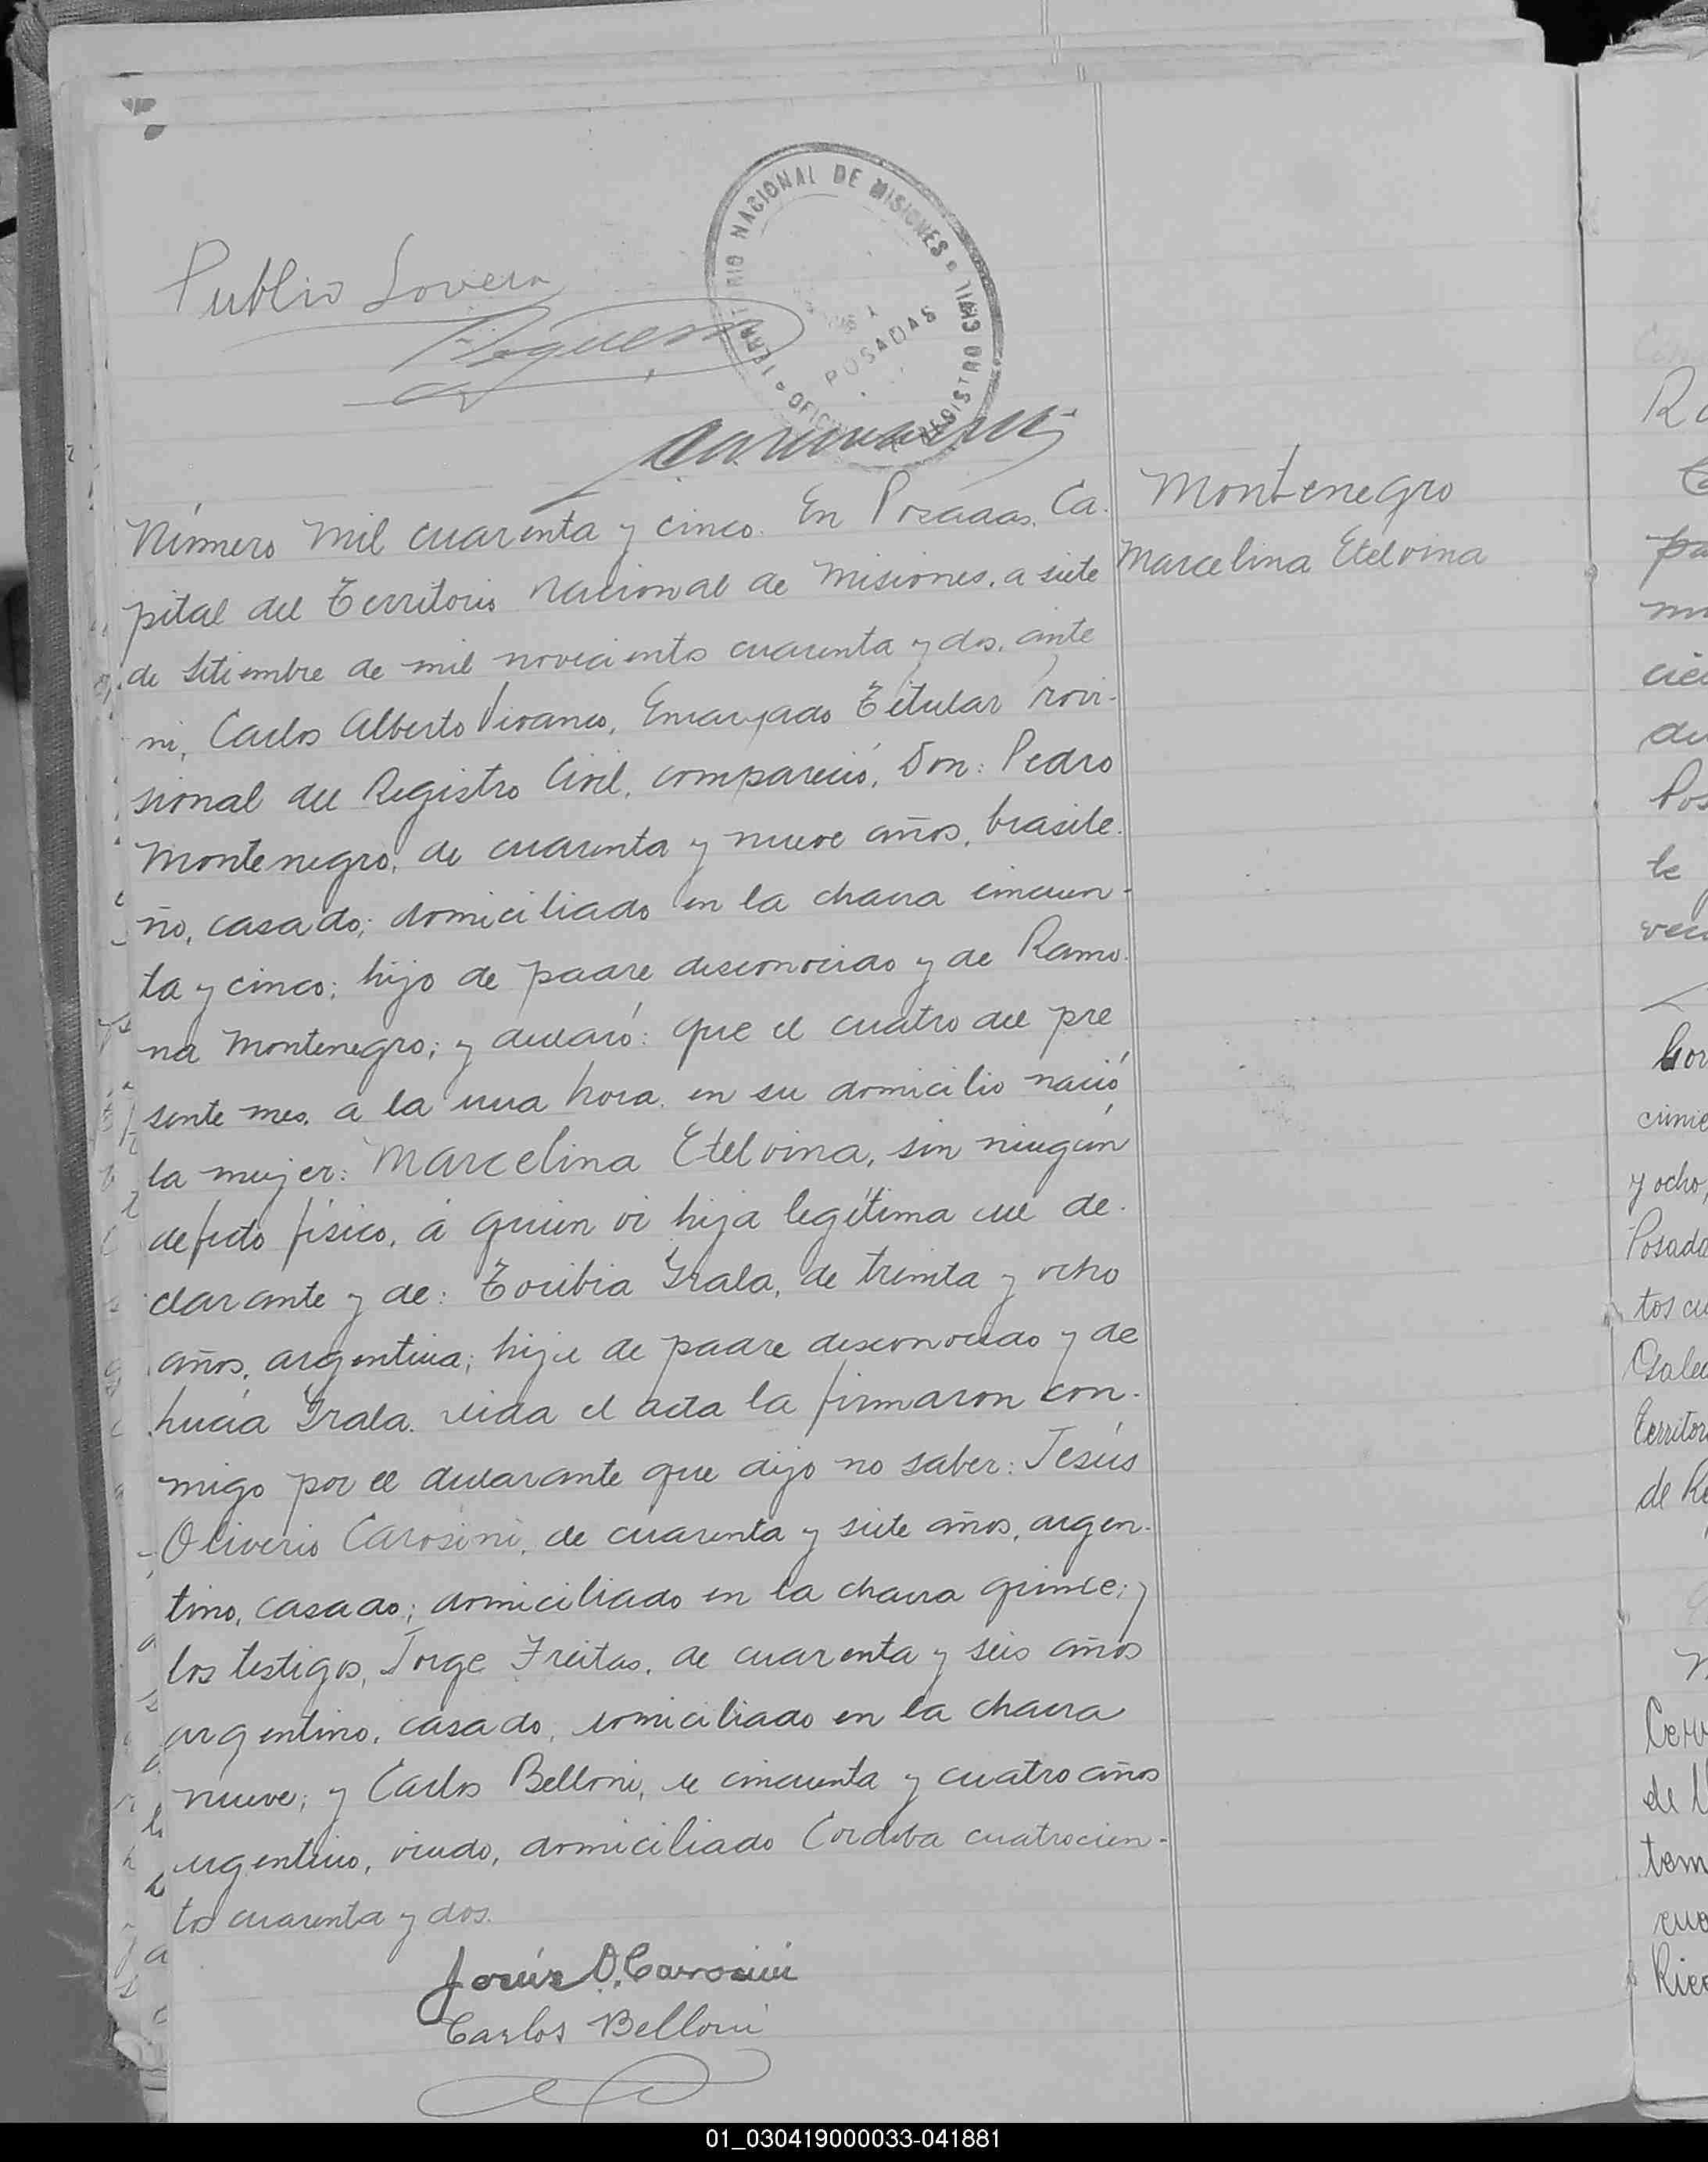 Publio Lovera
TERRITORIO NACIONAL DE MISIONES
REGISTRO CIVIL
POSADAS
Número mil cuarenta y cinco. En Posadas, Ca-
pital del Territorio Nacional de Misiones, a siete
de setiembre de mil novecientos cuarenta y dos, ante
mi, Carlos Alberto Vivanco, Encargado Titular Provi-
sional del Registro Civil, compareció, Don: Pedro
Montenegro, de cuarenta y nueve años, brasile-
ño, casado; domiciliado en la chacra cincuen-
ta y cinco; hijo de padre desconocido y de Ramo-
na Montenegro; y declaró: que el cuatro del pre
sente mes, a la una hora, en su domicilio nació
la mujer: Marcelina Etelvina, sin ningún
defecto físico, á quien vi hija legítima del de-
clarante y de: Toribia Grala, de treinta y ocho
años, argentina; hija de padre desconocido y de
Lucía Grala. Leída el acta la firmaron con-
migo por el declarante que dijo no saber: Jesús
Oliverio Carosini, de cuarenta y siete años, argen-
tino, casado; domiciliado en la chacra quince; y
los testigos, Jorge Freitas, de cuarenta y seis años
argentino, casado, domiciliado en la chacra
nueve; y Carlos Belloni, de cincuenta y cuatro años
argentino, viudo, domiciliado Cordoba cuatrocien-
tos cuarenta y dos.
Jesús O. Carosini
Carlos Belloni
Montenegro
Marcelina Etelvina
01_030419000033-041881